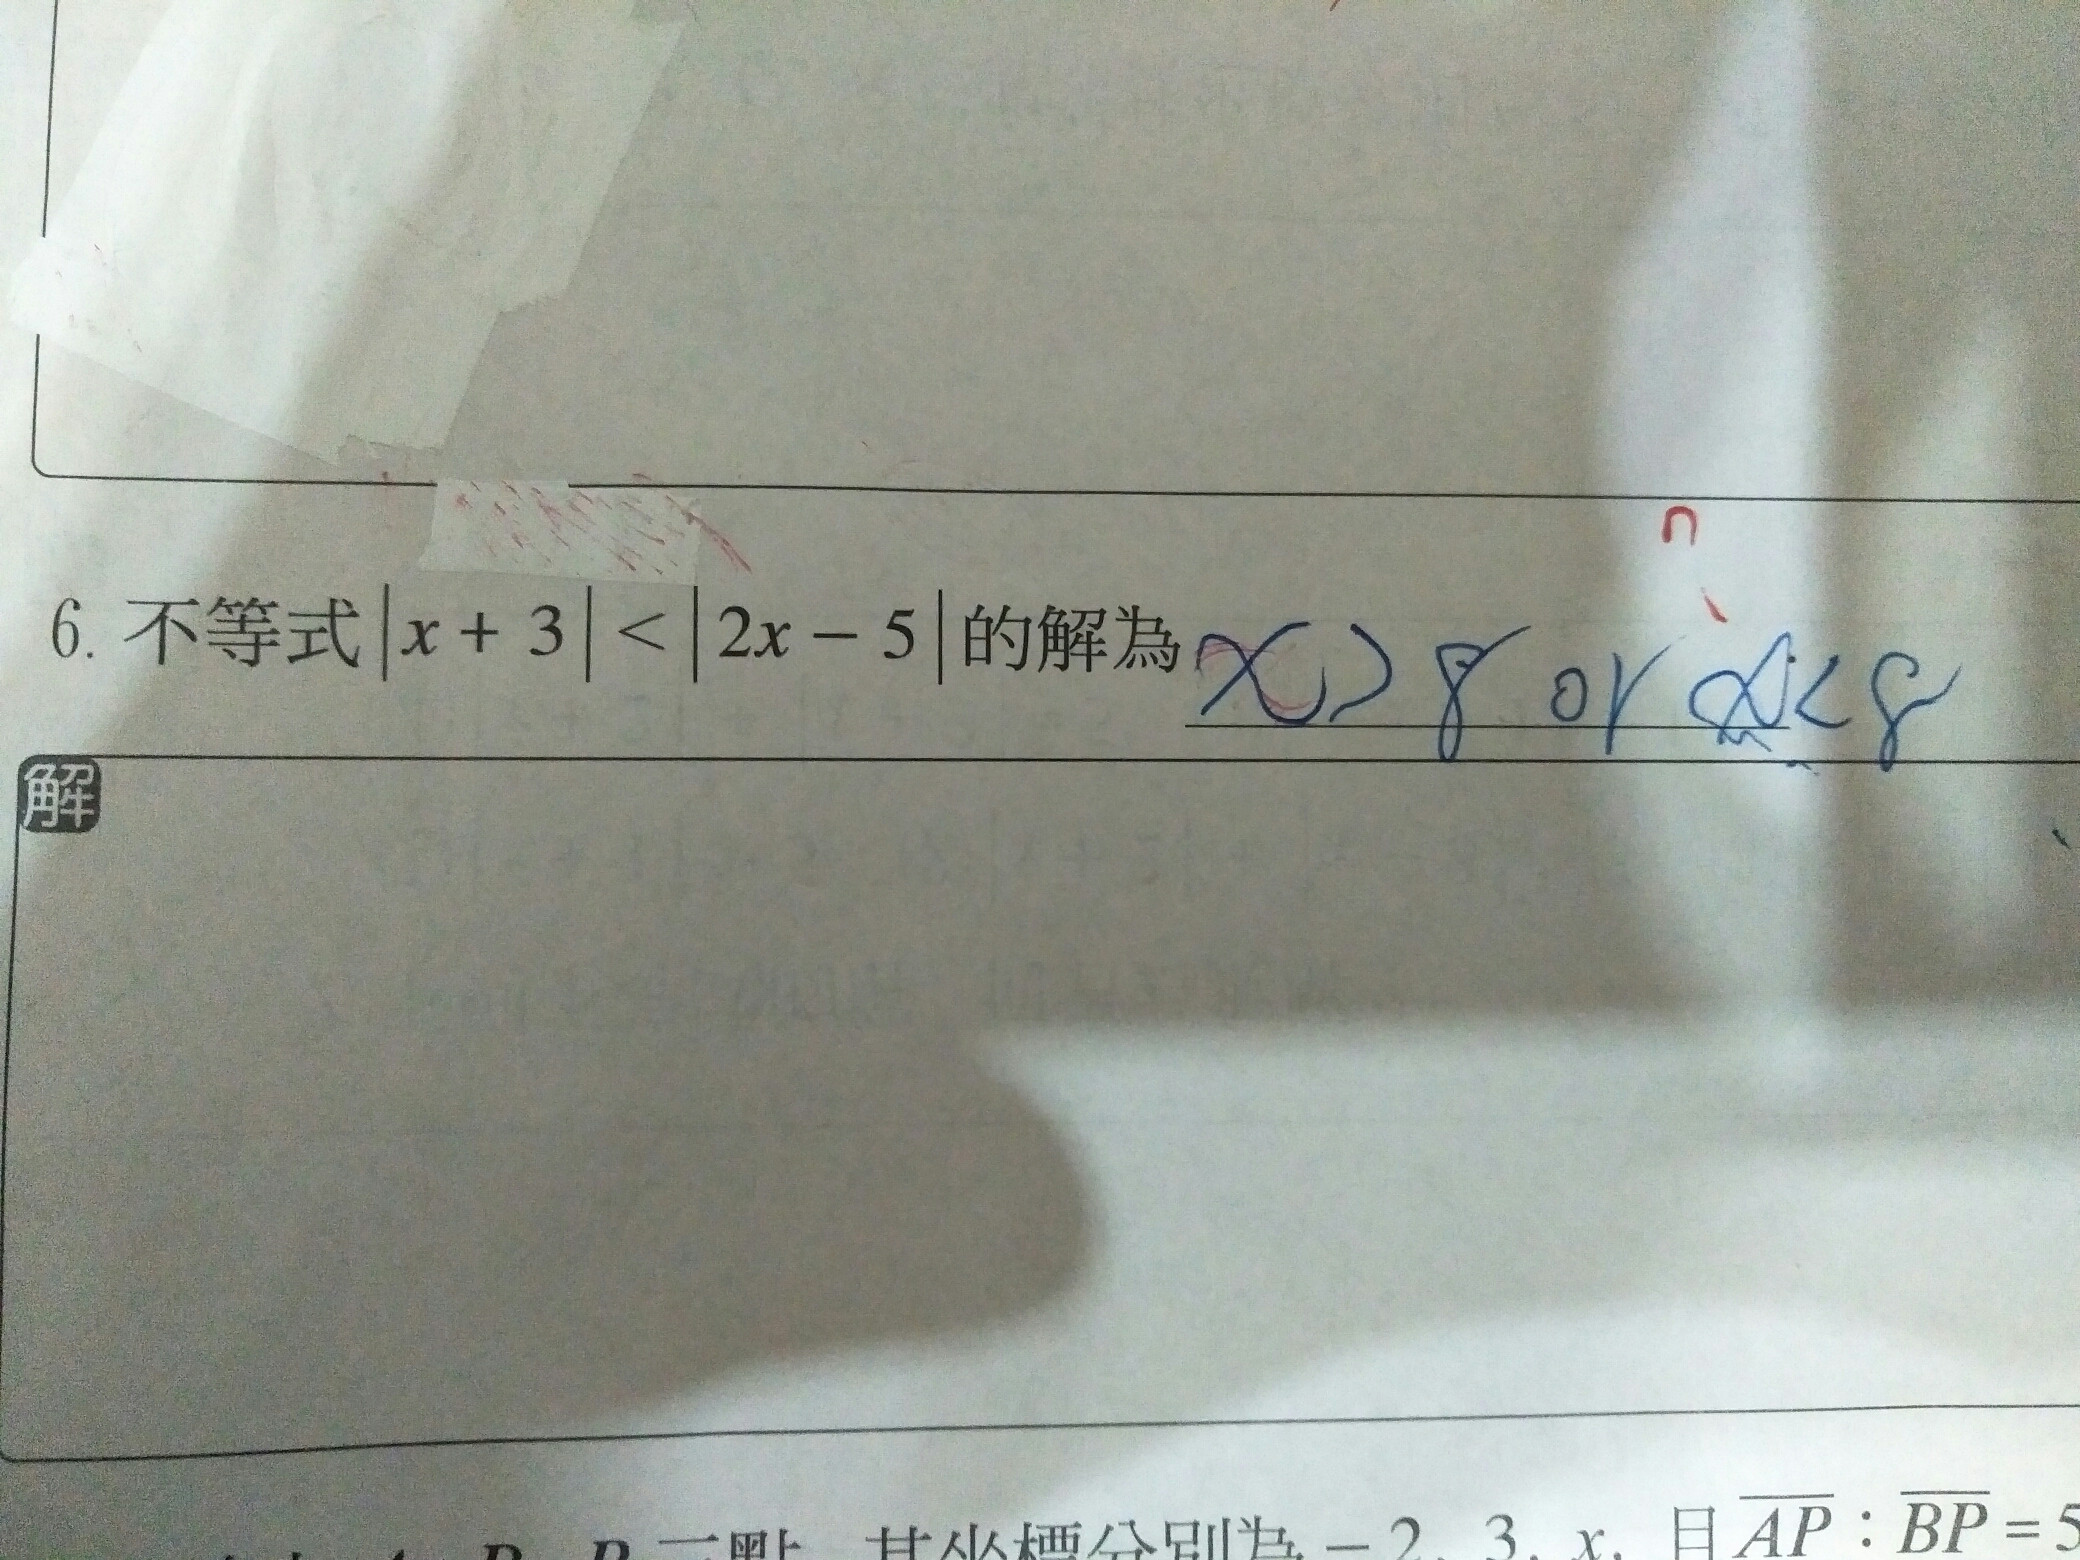 6. 不等式|x + 3| < |2x − 5|的解為 x > 8 or x < 8
解
三點，其坐標分別為 − 2, 3, x, 且 AP : BP = 5